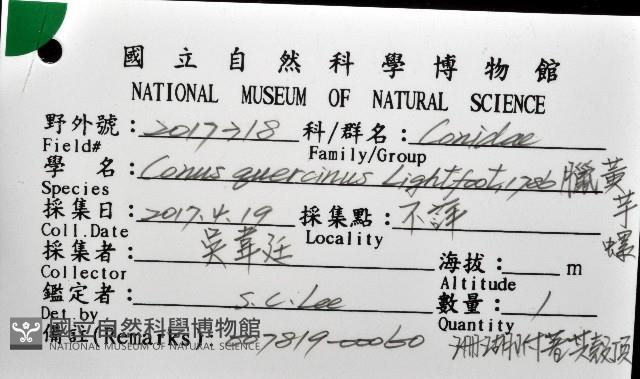 國立自然科學博物館
NATIONAL MUSEUM OF NATURAL SCIENCE
野外號: 2017718 科/群名: Conidae
Field# Family/Group
學 名: Conus quercinus Lightfoot, 1786 臘黃芋螺
Species
採集日: 2017.4.19 採集點: 不詳
Coll.Date Locality
採集者: 吳韋廷 海拔: m
Collector Altitude
鑑定者: S.C.Lee 數量: 1
Det by Quantity
備註(Remarks): 007819-00060 珊瑚附著其殼頂
國立自然科學博物館
NATIONAL MUSEUM OF NATURAL SCIENCE